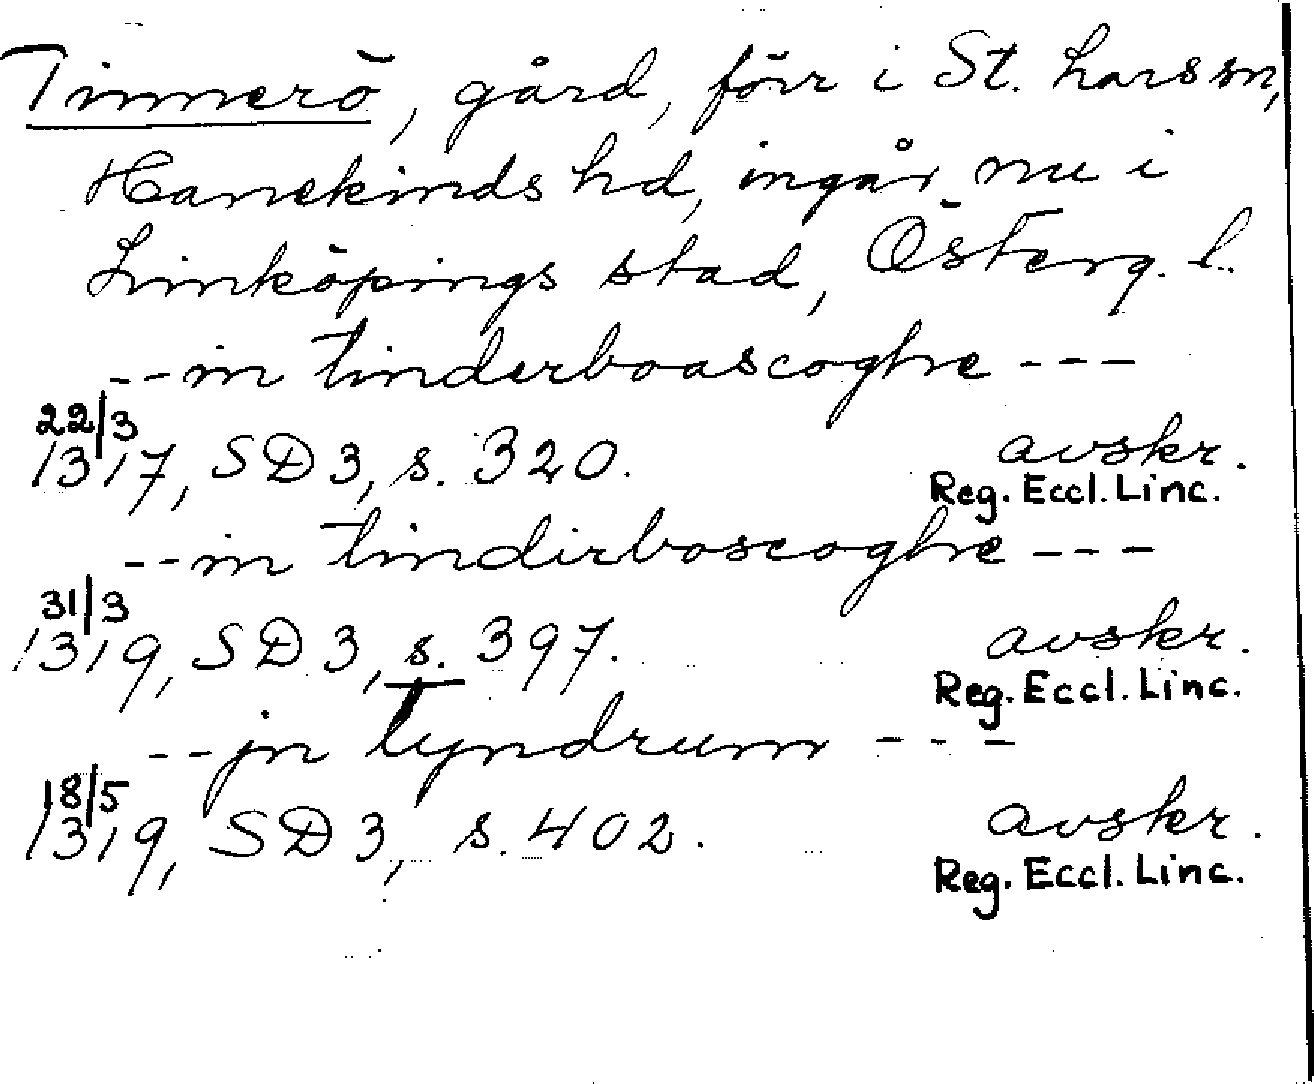 Tinnerö, gård, förr i St. Lars sn,
Hanekinds hd, ingår nu i
Linköpings stad, Österg. l.
--in tinderboascoghe ---
22/3
1317, SD 3, s. 320. avskr.
Reg. Eccl. Linc.
--in tindirboscoghe ---
31/3
1319, SD 3, s. 397. avskr.
Reg. Eccl. Linc.
--jn tyndrum ---
18/5
1319, SD 3, s. 402. avskr.
Reg. Eccl. Linc.